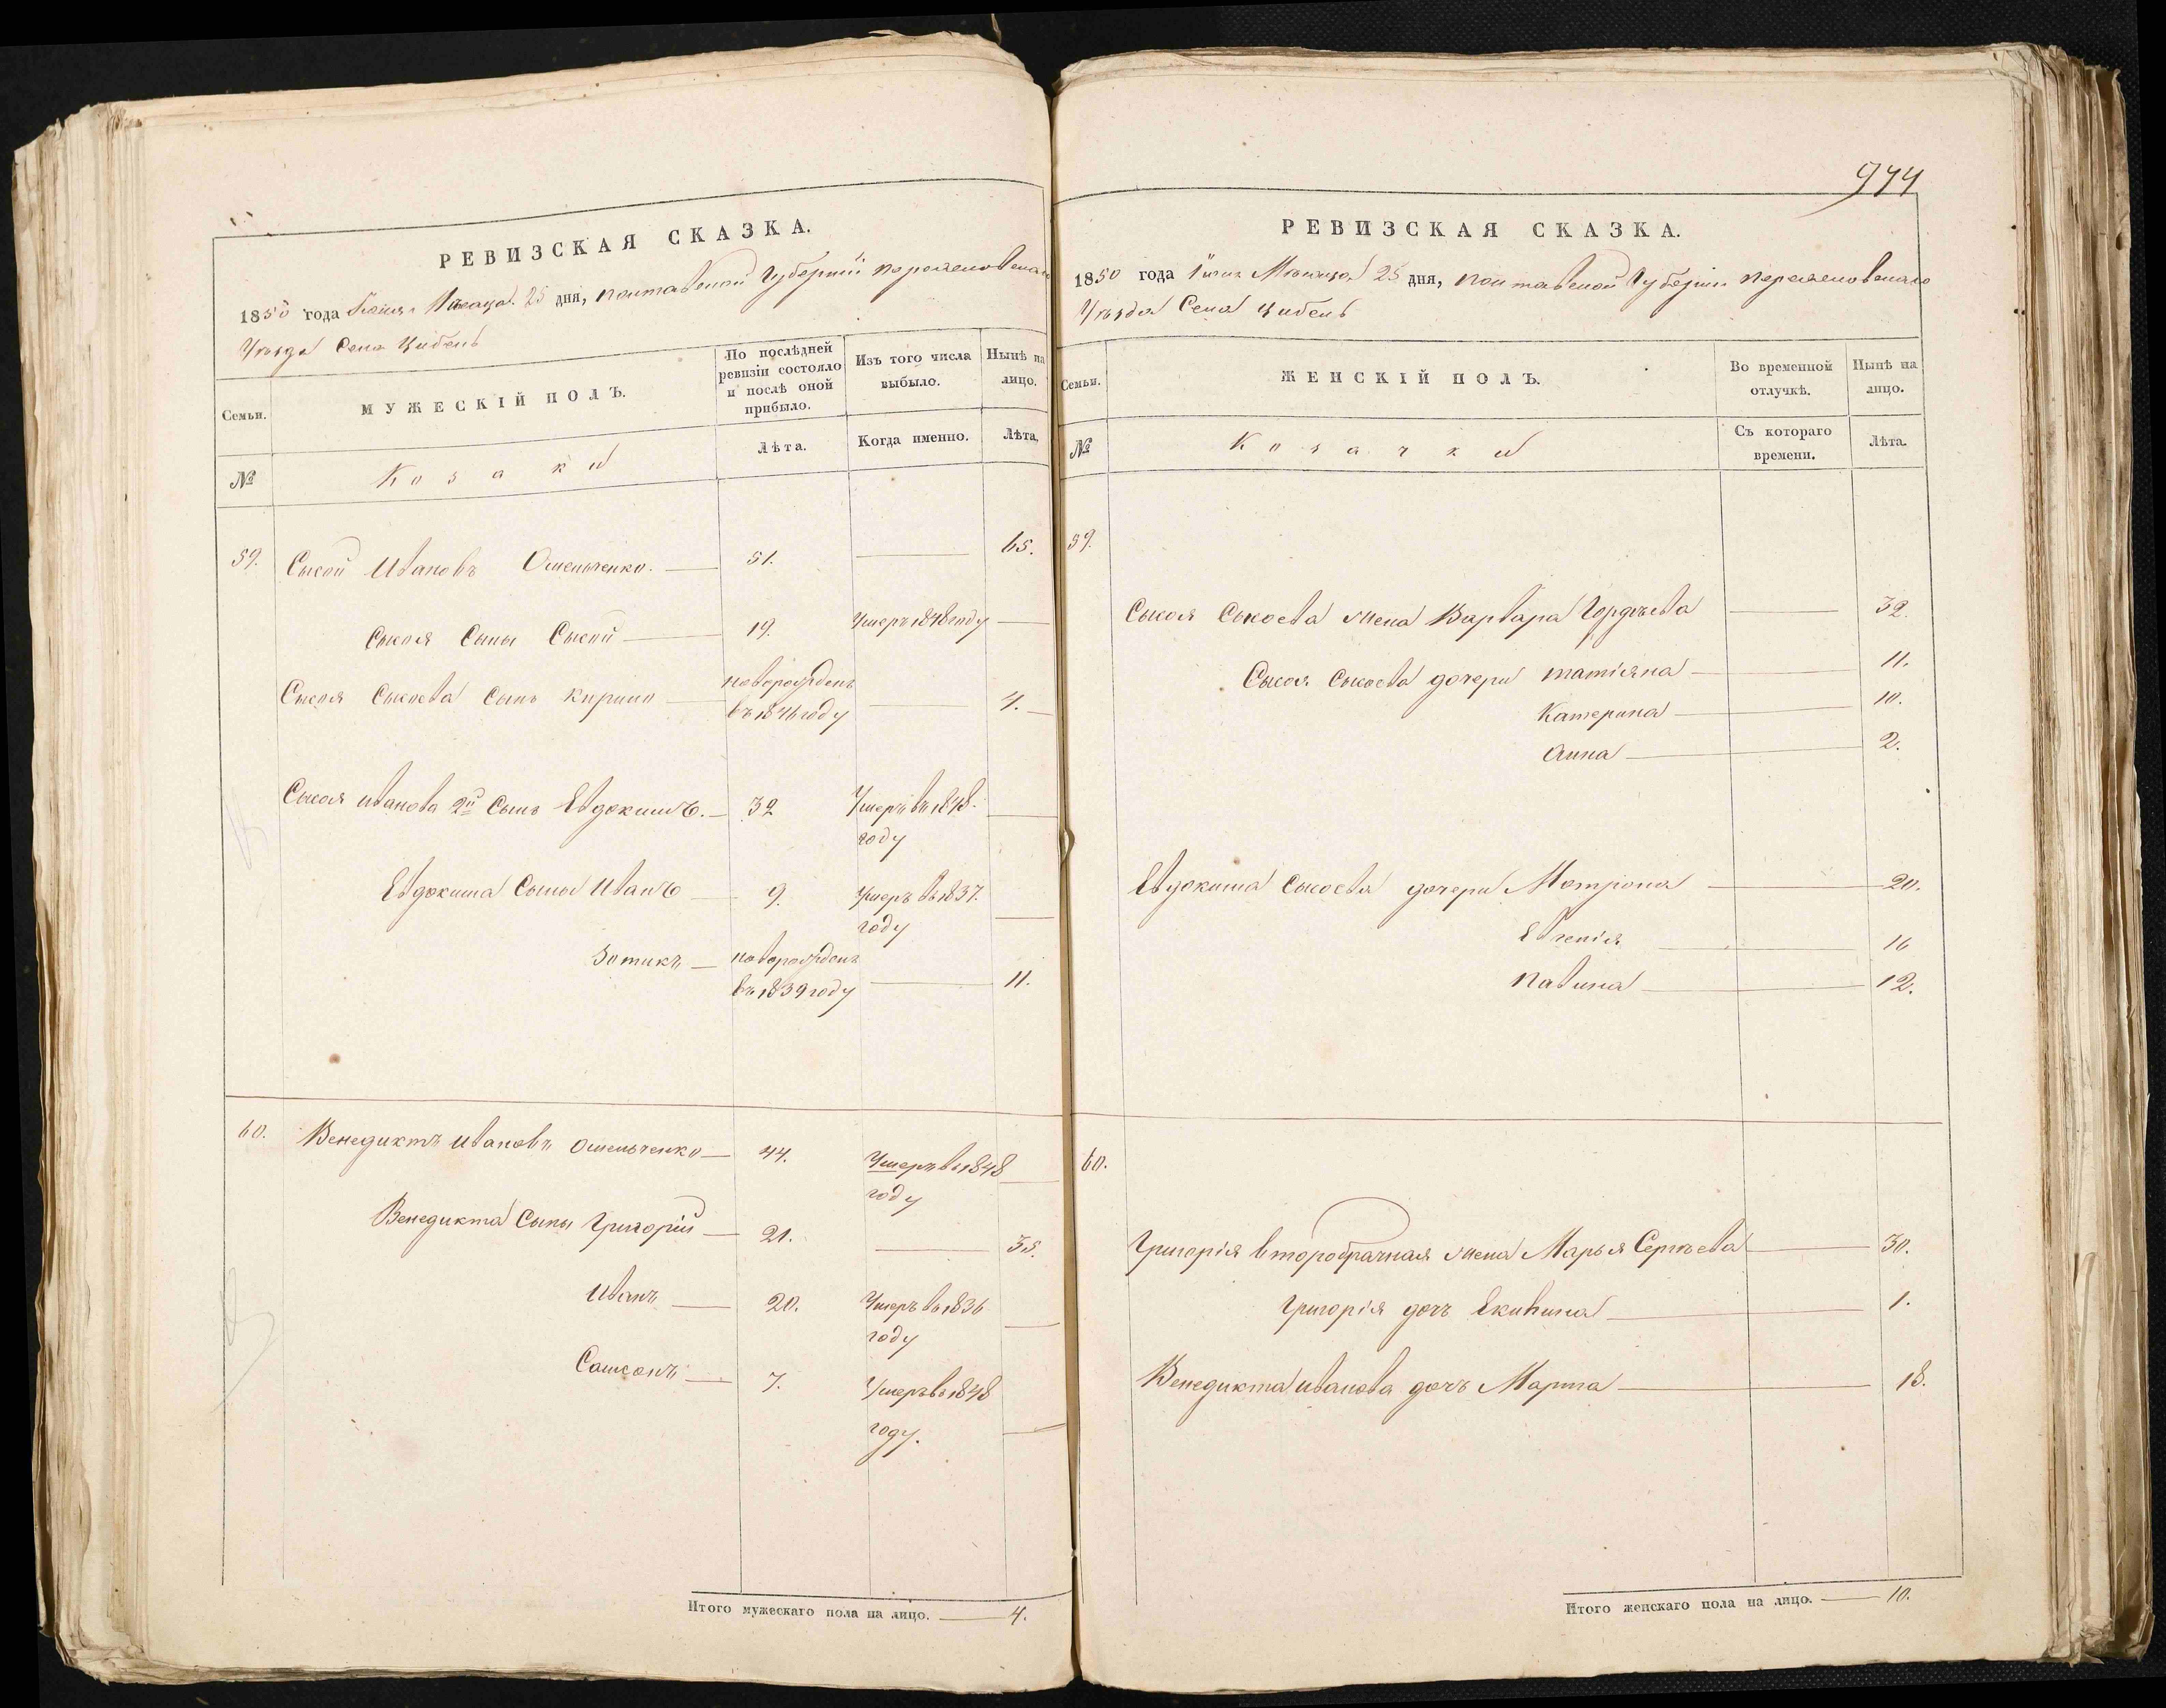 РЕВИЗСКАЯ СКАЗКА.
1850 года Юния Месяца 25 дня, полтавской Губернии переяславскаго
Уѣзда Села Цибель
Семьи. МУЖЕСКІЙ ПОЛЪ. По послѣдней ревизіи состояло и послѣ оной прибыло. Изъ того числа выбыло. Нынѣ на лицо.
№ Козаки Лѣта. Когда именно. Лѣта.
59. Сысой Ивановъ Омельченко. 51. 65.
Сысоя Сыны Сысой 19. Умеръ 1848 году
Сысоя Сысоева сынъ Кирило новорожденъ въ 1846 году 4.
Сысоя Иванова 2й Сынъ Евдокимъ. 32 Умеръ въ 1848. году
Евдокима Сыны Иванъ 9. Умеръ въ 1837. году
Зотикъ новорожденъ въ 1839 году 11.
60. Венедиктъ Ивановъ Омельченко 44. Умеръ въ 1848 году
Венедикта Сыны Григорій 21. 35.
Иванъ 20. Умеръ въ 1836 году
Самсонъ 7. Умеръ въ 1848 году.
Итого мужескаго пола на лицо. 4.
944
РЕВИЗСКАЯ СКАЗКА.
1850 года Месяца 25 дня, полтавской Губернии переяславскаго
Уѣзда Села Цибель
Семьи. ЖЕНСКІЙ ПОЛЪ. Во временной отлучкѣ. Нынѣ на лицо.
№ Козачки Съ котораго времени. Лѣта.
59.
Сысоя Сысоева жена Варвара Гордѣева 32.
Сысоя Сысоева дочери татіяна 11.
Катерина 10.
Анна 2.
Евдокима Сысоева дочери Мотрона 20.
Евгенія 16
Павлина 12.
60.
Григорія второбрачная жена Марья Сергѣева 30.
Григорія дочь Акилина 1.
Венедикта Иванова дочь Марта 18.
Итого женскаго пола на лицо. 10.